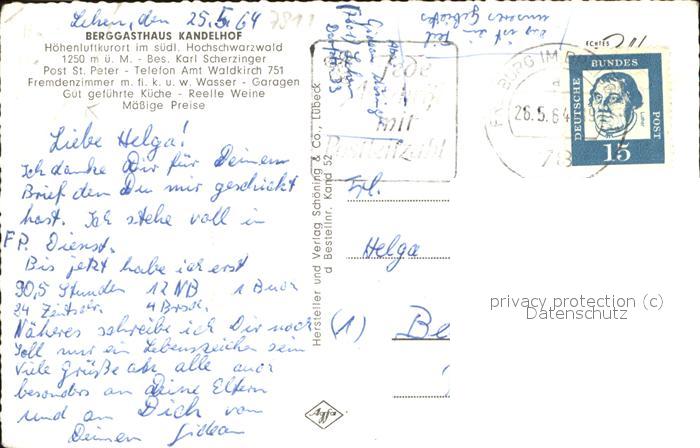 Lehen, den 25.5.64
7811
BERGGASTHAUS KANDELHOF
Höhenluftkurort im südl. Hochschwarzwald
1250 m ü. M. - Bes. Karl Scherzinger
Post St. Peter - Telefon Amt Waldkirch 751
Fremdenzimmer m. fl. k. u. w. Wasser - Garagen
Gut geführte Küche - Reelle Weine
Mäßige Preise
Liebe Helga!
Ich danke Dir für Deinem
Brief den Du mir geschickt
hast. Ich stehe voll in
FP. Dienst.
Bis jetzt habe ich erst
90,5 Stunden 12 NB 1 Buch
24 Zeitschr. 4 Brosch.
Näheres schreibe ich Dir noch
Soll nur ein Lebenszeichen sein
Viele Grüße an alle auch
besonders an Deine Eltern
und an Dich von
Deinem Gideon
Hersteller und Verlag Schöning & Co., Lübeck
d Bestellnr. Kand 52
Gideon
7801 Lehen
Das ist ein Teil
unseres Gebietes
ECHTES
Jede
mit
Postleitzahl
FREIBURG IM
a
26.5.64
78
DEUTSCHE BUNDES POST
15
Frl.
Helga
(1) Be
Agfa
privacy protection (c)
Datenschutz